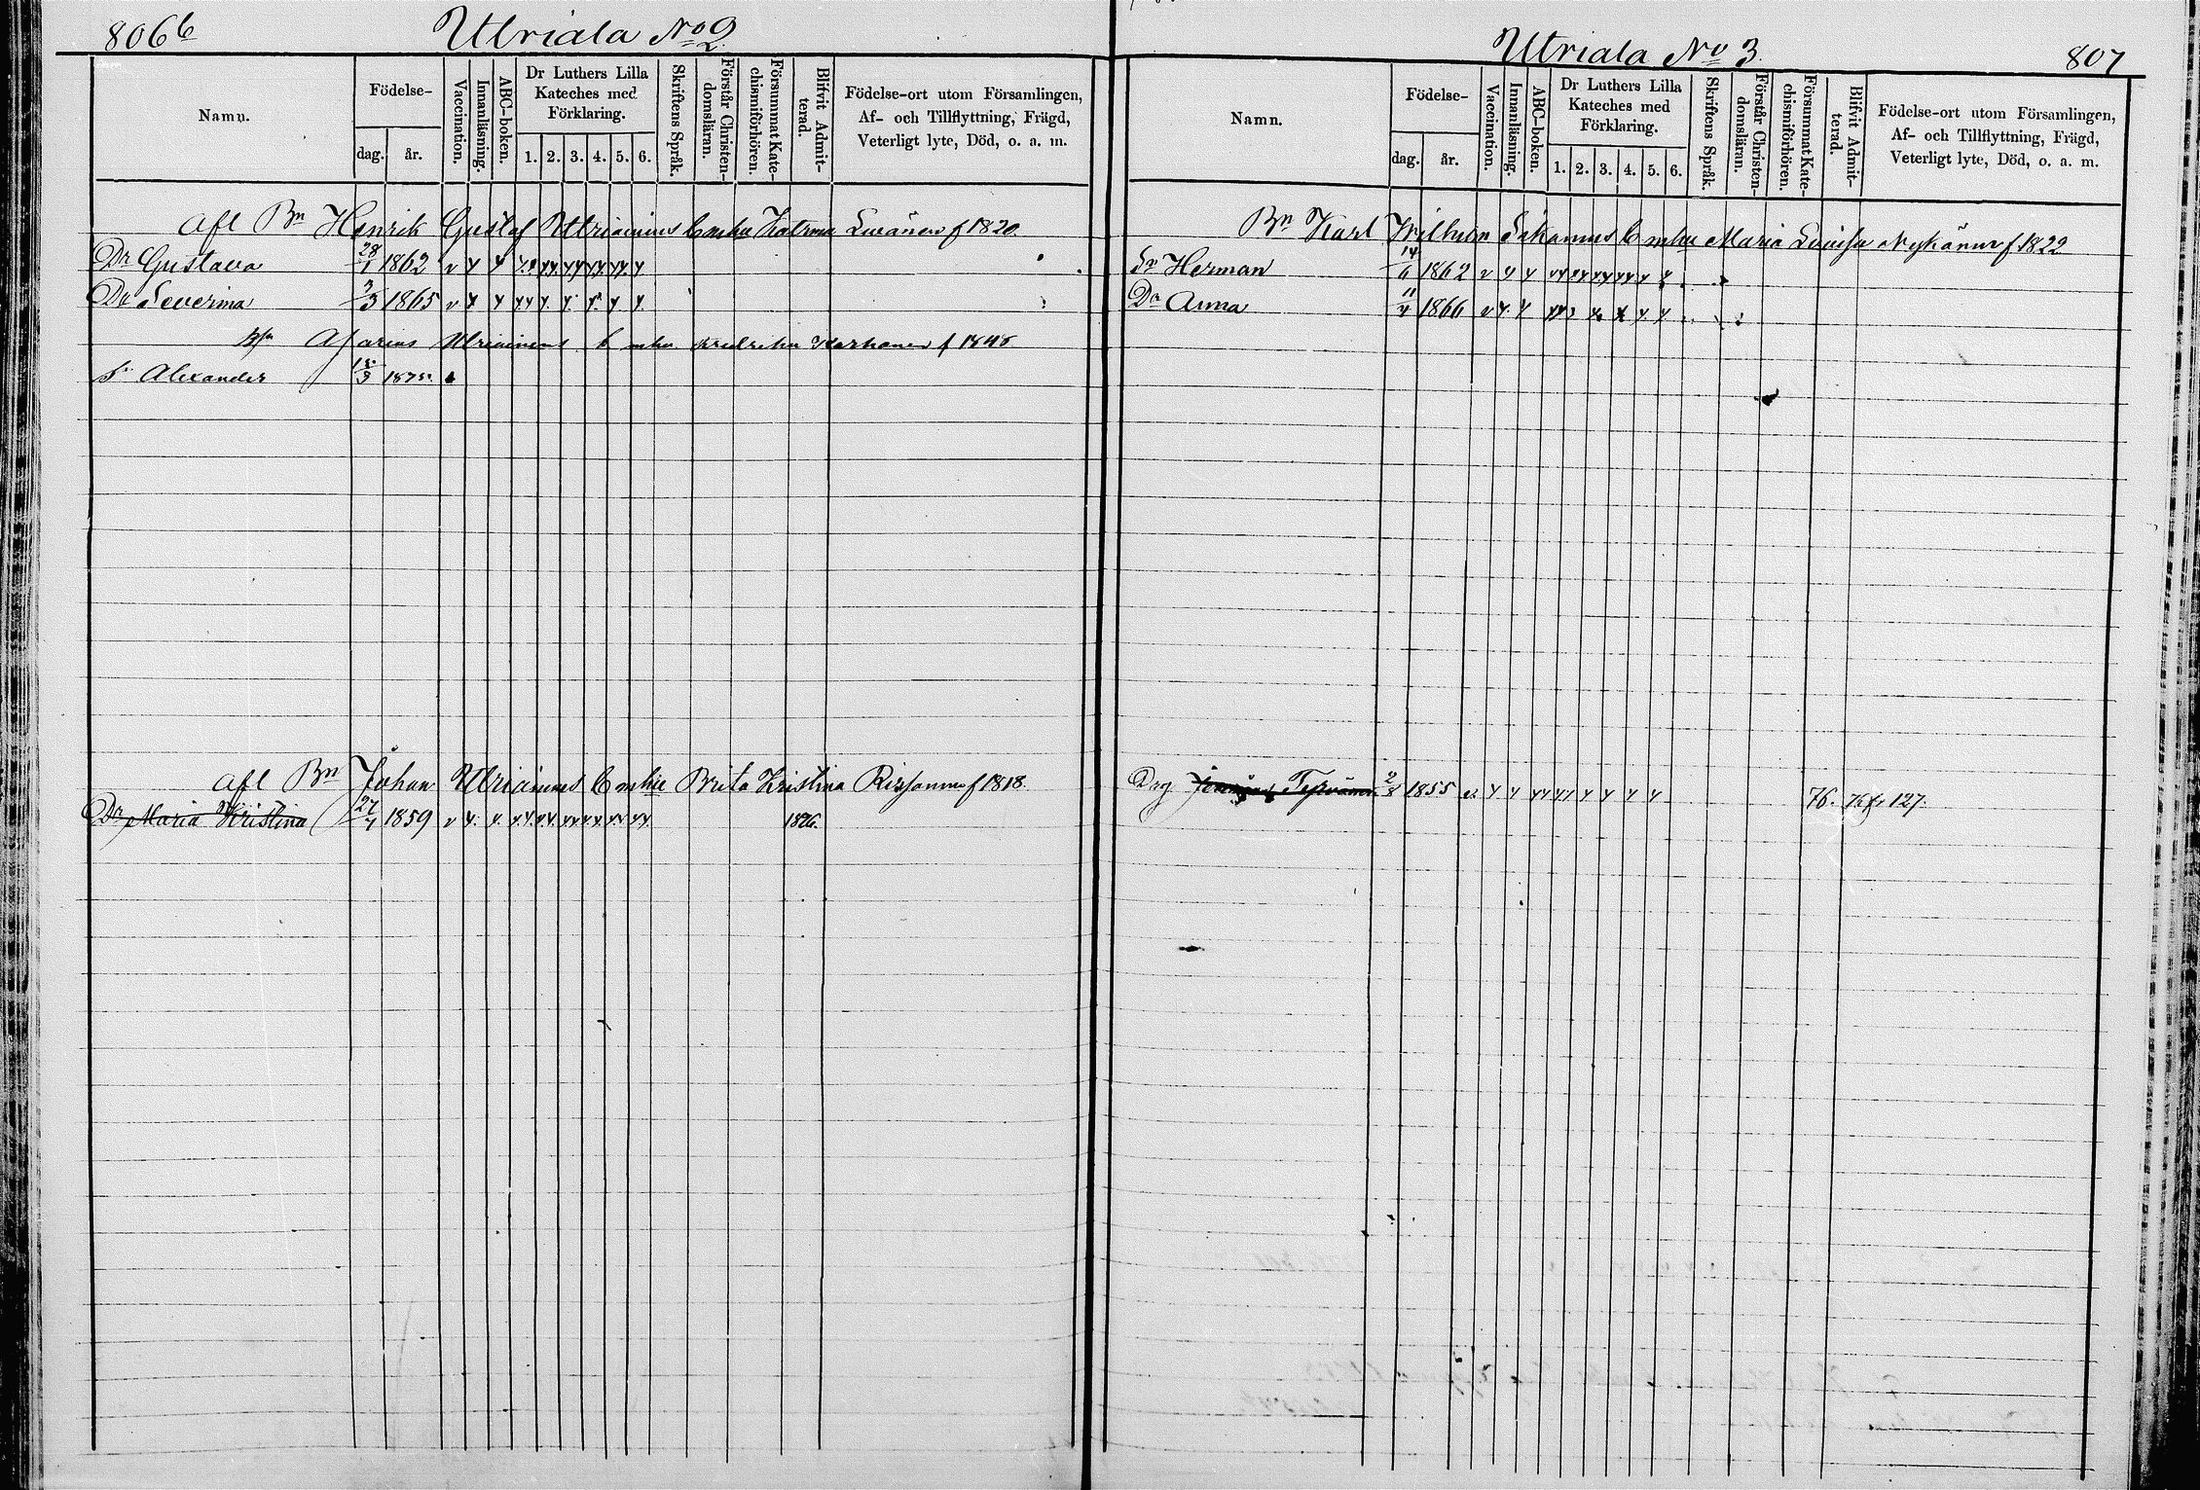 806b
Utriala No 2.
Namn.
Födelse-
dag.
år.
Vaccination.
Innanläsning.
ABC-boken.
Dr Luthers Lilla
Kateches med
Förklaring.
1. 2. 3. 4. 5. 6.
Skriftens Språk.
Förstår Christen-
domsläran.
Försummat Kate-
chismiförhören.
Blifvit Admit-
terad.
Födelse-ort utom Församlingen,
Af- och Tillflyttning, Frägd,
Veterligt lyte, Död, o. a. m.
Afl Bn Henrik Gustaf Utriainens Katrina f 1820.
Dr Gustava 28/1 1862
Dr Severina 1865
Utriainens f 1848
Sn Alexander 1875.
Afl Bn Johan Utriainens Brita Kristina Rissanen f 1818.
Dr Maria Kristina 27/1 1859 1876.
Utriala No 3.
807
Namn.
Födelse-
dag.
år.
Vaccination.
Innanläsning.
ABC-boken.
Dr Luthers Lilla
Kateches med
Förklaring.
1. 2. 3. 4. 5. 6.
Skriftens Språk.
Förstår Christen-
domsläran.
Försummat Kate-
chismiförhören.
Blifvit Admit-
terad.
Födelse-ort utom Församlingen,
Af- och Tillflyttning, Frägd,
Veterligt lyte, Död, o. a. m.
Bn Karl Wilhelm Maria Lovisa Nykänen f 1822
Sn Herman 14/6 1862
Dr Anna 11/4 1866
Drg 2/8 1855 76. 127.